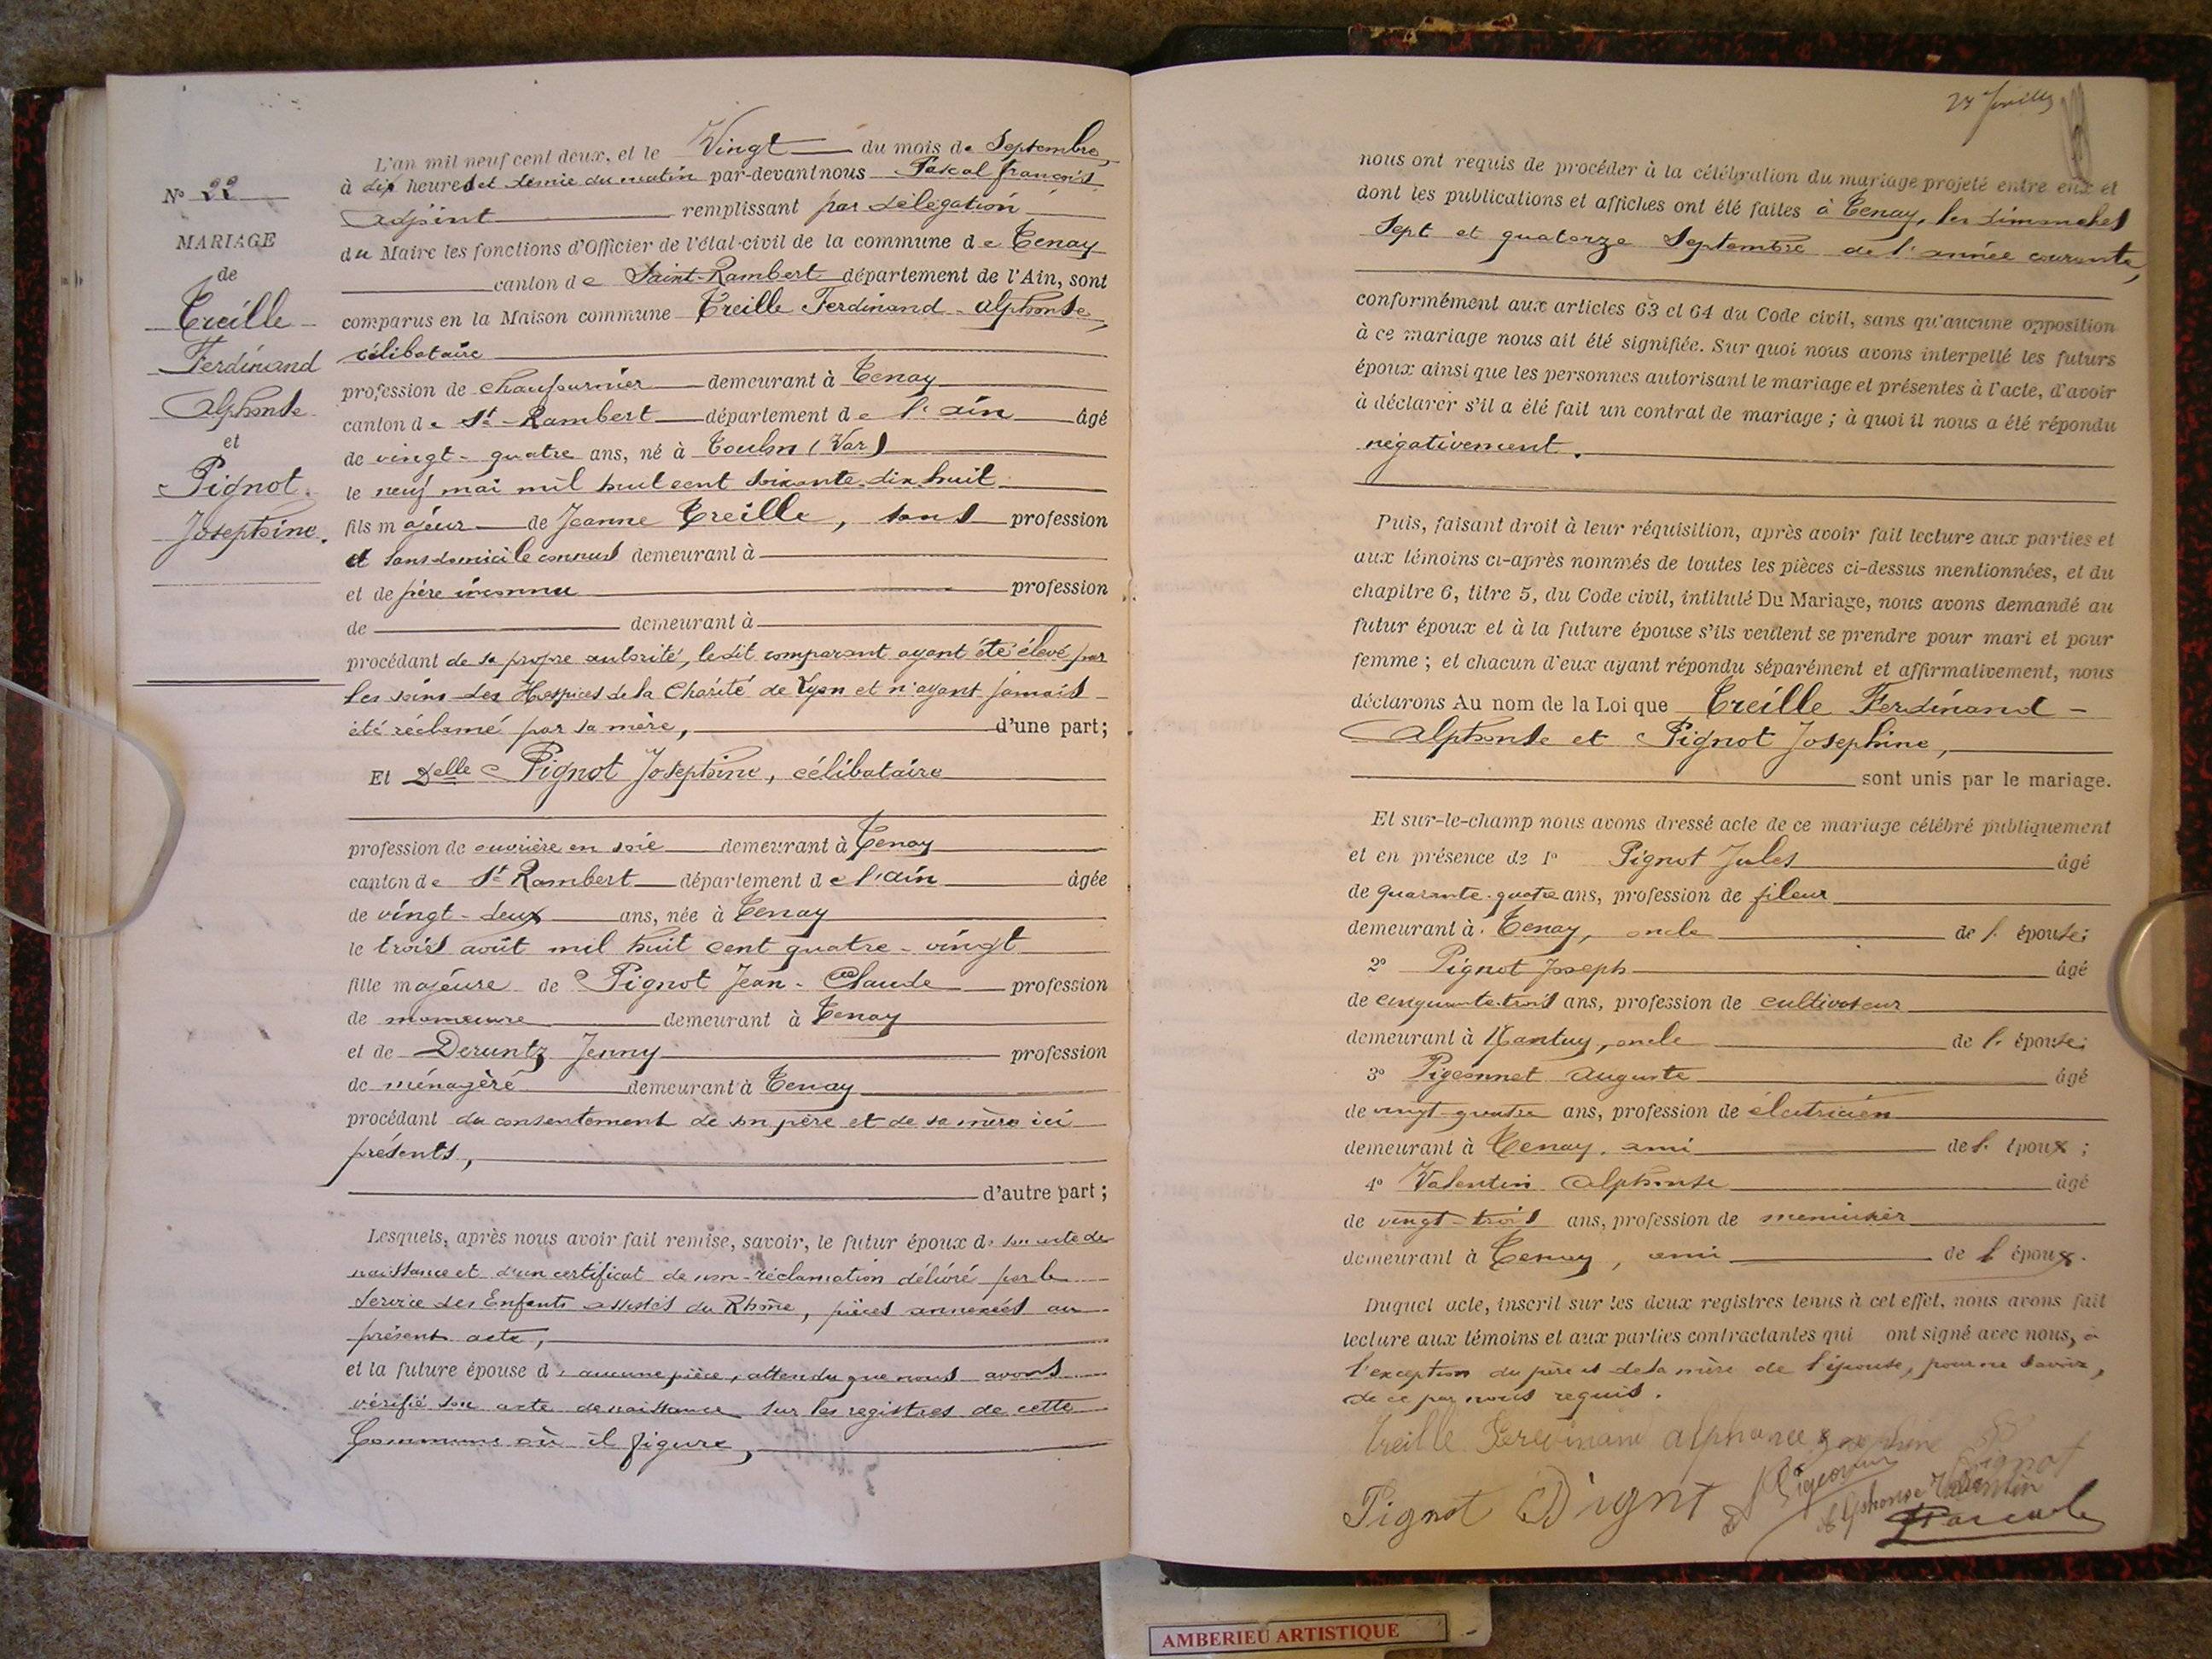 L'an mil neuf cent deux, et le Vingt du mois de Septembre,
à dix heures et demie du matin par-devant nous Pascal François
adjoint remplissant par délégation
du Maire les fonctions d'Officier de l'état-civil de la commune de Tenay
canton de Saint-Rambert département de l'Ain, sont
comparus en la Maison commune Treille Ferdinand-Alphonse,
célibataire
profession de chaufournier demeurant à Tenay
canton de St-Rambert département de l'Ain âgé
de vingt-quatre ans, né à Toulon (Var)
le neuf mai mil huit cent soixante-dix-huit
fils majeur de Jeanne Treille, sans profession
et sans domicile connus demeurant à
et de père inconnu profession
de demeurant à
procédant de sa propre autorité, ledit comparant ayant été élevé par
les soins des Hospices de la Charité de Lyon et n'ayant jamais
été réclamé par sa mère, d'une part;
Et Delle Pignot Josephine, célibataire
profession de ouvrière en soie demeurant à Tenay
canton de St Rambert département de l'Ain âgée
de vingt-deux ans, née à Tenay
le trois août mil huit cent quatre-vingt
fille majeure de Pignot Jean-Claude profession
de manœuvre demeurant à Tenay
et de Deruntz Jenny profession
de ménagère demeurant à Tenay
procédant du consentement de son père et de sa mère ici
présents,
d'autre part;
Lesquels, après nous avoir fait remise, savoir, le futur époux de son acte de
naissance et d'un certificat de non-réclamation délivré par le
Service des Enfants assistés du Rhône, pièces annexées au
présent acte,
et la future épouse d'aucune pièce, attendu que nous avons
vérifié son acte de naissance sur les registres de cette
Commune où il figure,
No 22
MARIAGE
de
Treille
Ferdinand
Alphonse
et
Pignot
Josephine.
nous ont requis de procéder à la célébration du mariage projeté entre eux et
dont les publications et affiches ont été faites à Tenay, les dimanches
sept et quatorze Septembre de l'année courante,
conformément aux articles 63 et 64 du Code civil, sans qu'aucune opposition
à ce mariage nous ait été signifiée. Sur quoi nous avons interpellé les futurs
époux ainsi que les personnes autorisant le mariage et présentes à l'acte, d'avoir
à déclarer s'il a été fait un contrat de mariage; à quoi il nous a été répondu
négativement.
Puis, faisant droit à leur réquisition, après avoir fait lecture aux parties et
aux témoins ci-après nommés de toutes les pièces ci-dessus mentionnées, et du
chapitre 6, titre 5, du Code civil, intitulé Du Mariage, nous avons demandé au
futur époux et à la future épouse s'ils veulent se prendre pour mari et pour
femme; et chacun d'eux ayant répondu séparément et affirmativement, nous
déclarons Au nom de la Loi que Treille Ferdinand-
Alphonse et Pignot Josephine,
sont unis par le mariage.
Et sur-le-champ nous avons dressé acte de ce mariage célébré publiquement
et en présence de 1o Pignot Jules âgé
de quarante-quatre ans, profession de fileur
demeurant à Tenay, oncle de l'épouse;
2o Pignot Joseph âgé
de cinquante-trois ans, profession de cultivateur
demeurant à Nantuy, oncle de l'épouse;
3o Pigeonnet Auguste âgé
de vingt-quatre ans, profession de électricien
demeurant à Tenay, ami de l'époux;
4o Valentin Alphonse âgé
de vingt-trois ans, profession de menuisier
demeurant à Tenay, ami de l'époux.
Duquel acte, inscrit sur les deux registres tenus à cet effet, nous avons fait
lecture aux témoins et aux parties contractantes qui ont signé avec nous, à
l'exception du père et de la mère de l'épouse, pour ne savoir,
de ce par nous requis.
Treille alphonse
Pignot
Pignot
Alphonse Valentin
Pascal
AMBERIEU ARTISTIQUE